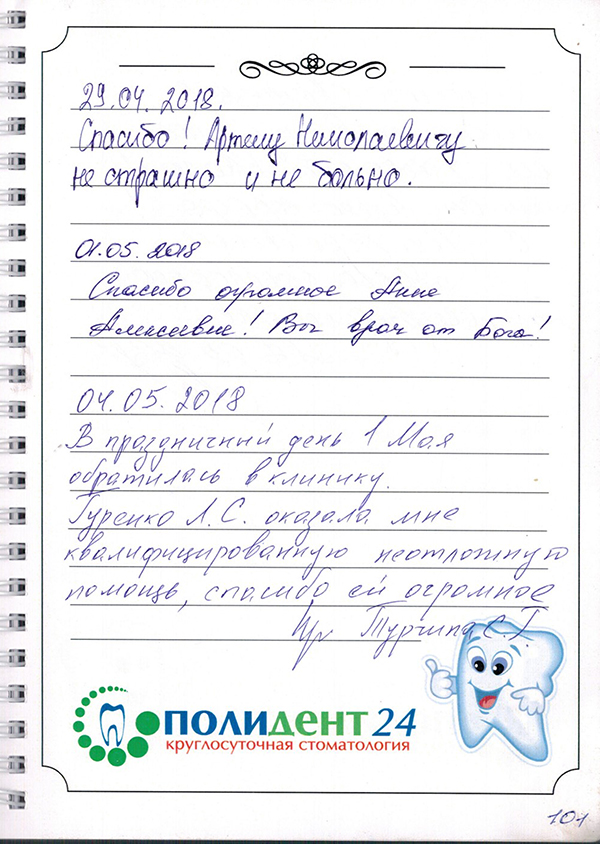 29.04.2018.
Спасибо! Артему Николаевичу
не страшно и не больно.
01.05.2018
Спасибо огромное Анне
Алексеевне! Вы врач от Бога!
04.05.2018
В праздничный день 1 Мая
обратилась в клинику.
Гуренко Л.С. оказала мне
квалифицированную неотложную
помощь, спасибо ей огромное
С.Г.
ПОЛИДЕНТ 24
КРУГЛОСУТОЧНАЯ СТОМАТОЛОГИЯ
101